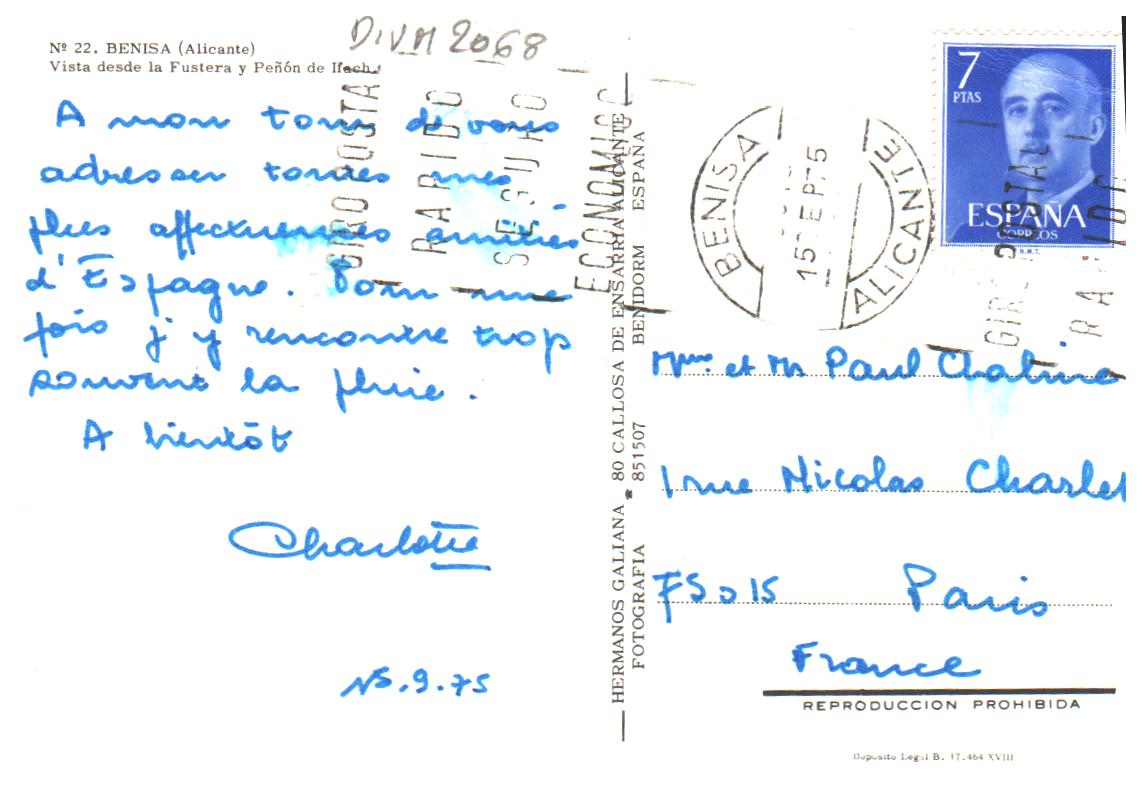 DIVM 2068
Nº 22. BENISA (Alicante)
Vista desde la Fustera y Peñón de Ifach.
A mon tour de vous
adresser toutes mes
plus affectueuses amitiés
d'Espagne. Pour une
fois j'y rencontre trop
souvent la pluie.
A bientôt
Charlotte
15.9.75
GIROPOSTAL
RAPIDO
SEGURO
ECONOMICO
HERMANOS GALIANA - 80 CALLOSA DE ENSARRIA ALICANTE
FOTOGRAFIA * 851507 BENIDORM ESPAÑA
BENISA
15 SEP. 75
ALICANTE
7
PTAS
ESPAÑA
CORREOS
F.N.M.T.
GIRO POSTAL
RAPIDO
Mme et Mr Paul
1 rue Nicolas Charlet
75015 Paris
France
REPRODUCCION PROHIBIDA
Deposito Legal B. 17.464 XVIII